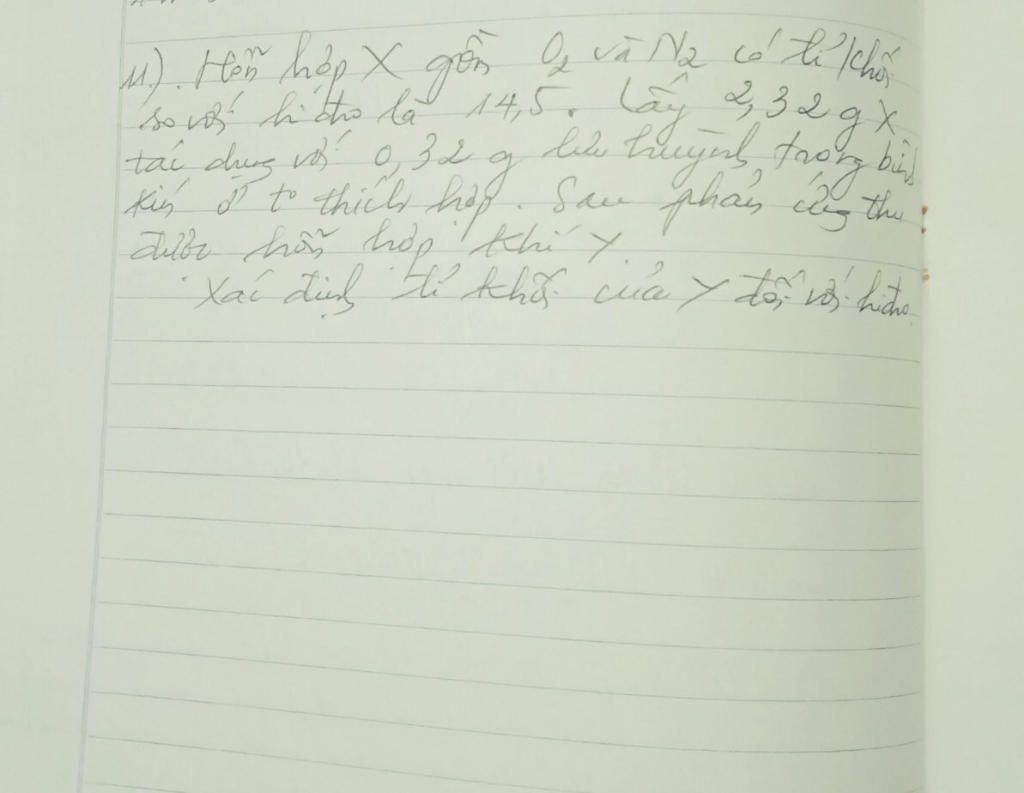 11). Hỗn hợp X gồm O₂ và N₂ có tỉ khối
so với hiđro là 14,5. Lấy 2,32 g X
tác dụng với 0,32 g lưu huỳnh trong bình
kín ở t° thích hợp. Sau phản ứng thu
được hỗn hợp khí Y.
Xác định tỉ khối của Y đối với hiđro.